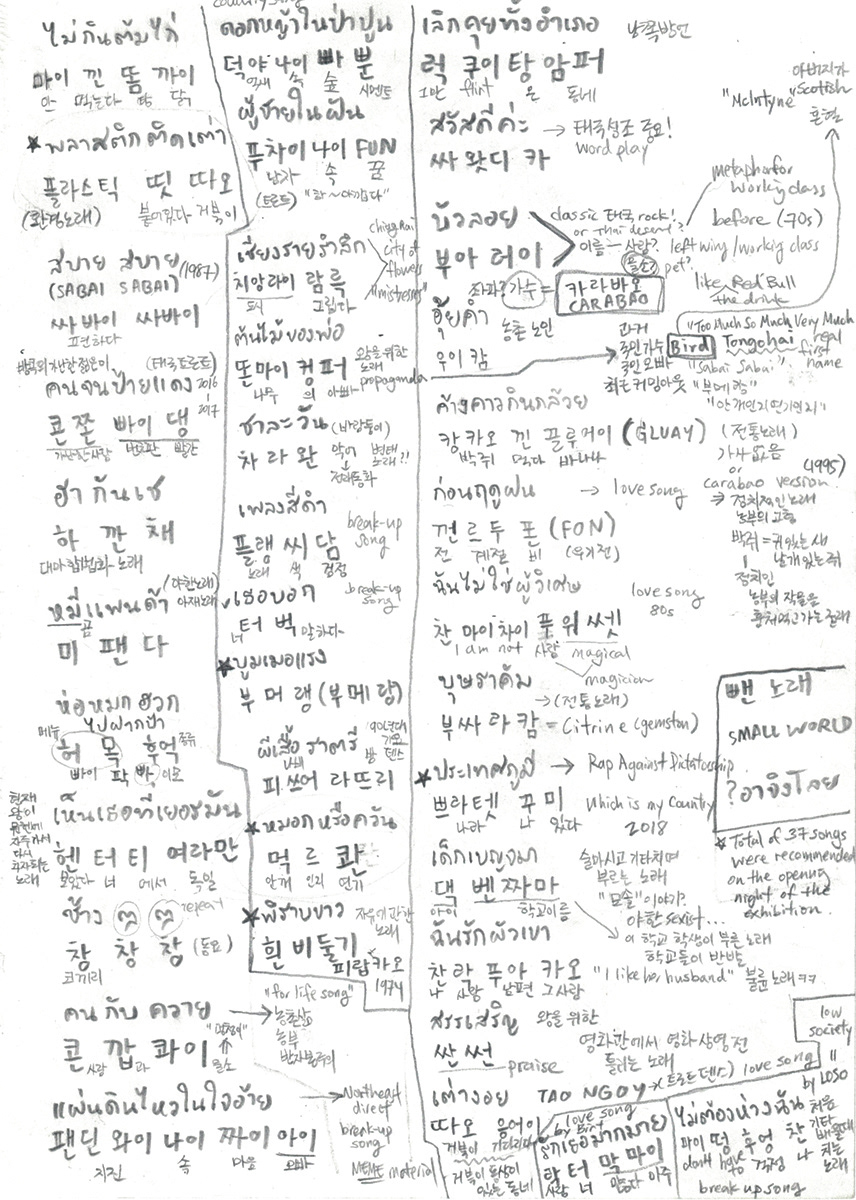 ไม่กินต้มไก่
마이 낀 똠 까이
안 먹는다 탕 닭
★พลาสติกติดเต่า
플라스틱 띳 따오
(환경노래) 붙어있다 거북이
สบาย สบาย (1987)
(SABAI SABAI)
싸바이 싸바이
편하다
(태국트로트)
คนจนป้ายแดง 2016
2017
콘쫀 빠이 댕
가난한사람 번호판 빨간
ฮา กัน เซ
하 깐 채
대마 합법화 노래
หมีแพนด้า
곰
미 팬 다
ห่อหมกฮวก
ไปฝากป้า
메뉴 허 목 후억 종류
빠이 팍 빠 이모
เห็นเธอที่เยอรมัน
헨 터 티 여라만
보았다 너 에서 독일
ช้าง ๆ ๆ repeat
창 창 창 (동요)
코끼리
คน กับ ควาย
콘 깝 콰이
사람 과 물소
"for life song"
농부
แผ่นดินไหวในใจอ้าย
팬딘 와이 나이 짜이 아이
지진 속 마음 오빠
Northeast
direct
break-up
song
MEME material
ดอกหญ้าในป่าปูน
덕야 나이 빠 뿐
억새 속 숲 시멘트
ผู้ชายในฝัน
푸차이 나이 FUN
남자 속 꿈
(트로트)
เชียงรายรำลึก
치앙라이 람륵
도시 그립다
Ching Rai
city of
flowers
"mistresses"
ต้นไม้ของพ่อ
똔마이 컹 퍼
나무 의 아빠
왕을 위한
노래
propaganda
ชาละวัน (바람둥이)
차 라 완 악어 변태
전래동화 노래?!
เพลงสีดำ
플랭 씨 담
노래 색 검정
break-up
song
เธอบอก
터 벅
너 말하다
break-up
song
★บูมเมอแรง
부 머 랭 (부메랑)
ผีเสื้อราตรี
나비 밤
피 쓰어 라뜨리
90년대
★หมอกหรือควัน
먹 르 콴
안개 인지 연기
★พิราบขาว
흰 비둘기
피랍카오
1974
자유에 관한
노래
เลิกคุยทั้งอำเภอ
럭 쿠이 탕 암퍼
그만 flirt 온 동네
สวัสดีค่ะ → 태국성조 중요!
word play
싸 왓디 카
บัวลอย
부아 러이
classic 태국 rock!
이름 – 사람?
pet?
가수 = 카라바오
CARABAO
metaphor for
working class
before (70s)
left wing / working class
like Red Bull
the drink
아버지가
Scottish
혼혈
"McIntyre"
อุ๊ยคำ 농촌 노인
우이 캄
과거
국민가수
국민오빠
최근커밍아웃
"Too Much So Much Very Much
Bird Tongchai real
first
name
"Sabai Sabai"
"부메랑"
"안개인지연기인지"
ค้างคาวกินกล้วย
캉카오 낀 끌루어이 (GLUAY)
박쥐 먹다 바나나
(전통노래)
가사 없음
or (1995)
carabao version
⇒ 정치적인 노래
농부의 고향
정치인
농부의 작물을
훔쳐먹고가는 노래
ก่อนฤดูฝน → love song
껀 르두 폰 (FON)
전 계절 비 (우기전)
ฉันไม่ใช่ผู้วิเศษ love song
80s
찬 마이 차이 푸 위 쎗
I am not 사람 magical
magician
บุษราคัม → (전통노래)
부 싸 라 캄 = Citrine (gemston)
★ประเทศกูมี → Rap Against Dictatorship
쁘라텟 꾸 미 which is my Country
나라 나 있다 2018
เด็กเบญจมา
댁 벤 짜마
아이 학교이름
술마시고 기타치며
부르는 노래
야한 sexist...
이 학교 학생이 부른 노래
학교들이 반발
ฉันรักผัวเขา
찬 락 푸아 카오 "I like her husband" 불륜노래ㅋㅋ
나 사랑 남편 그사람
สรรเสริญ 왕을 위한
싼 썬
praise
영화관에서 영화 상영 전
들리는 노래
เต่างอย TAO NGOY → (트로트댄스) love song
따오 응어이
거북이
love song
by Bird
รักเธอมากมาย
락 터 막 마이
사랑 너 많이 아주
ไม่ต้องห่วงฉัน
마이 떵 후엉 찬
don't have to 걱정 나
break up song
처음
기타
배울때
치는
노래
low
society
=
by LOSO
뺀 노래
SMALL WORLD
? อาจิงโลย
★ Total of 37 songs
were recommended
on the opening
night of the
exhibition.